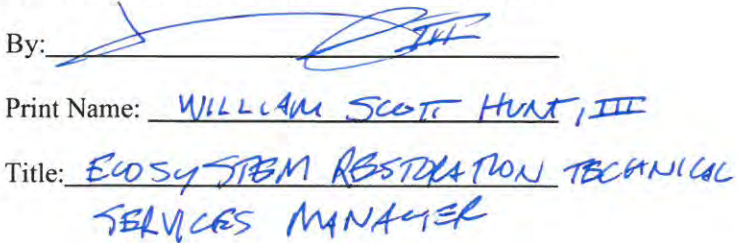 By: III
Print Name: WILLIAM SCOTT HUNT, III
Title: ECOSYSTEM RESTORATION TECHNICAL
SERVICES MANAGER